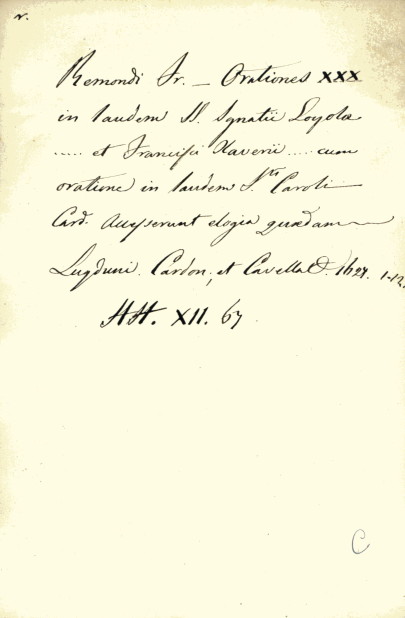 N.
Remondi Fr. — Orationes XXX
in laudem SS. Ignatii Loyolæ
..... et Francisci Xaverii ..... cum
oratione in laudem S.ti Caroli
Card. Accesserunt elogia quædam
Lugduni. Cardon, et Cavellat. 1627. 1-12.
HH. XII. 67
C